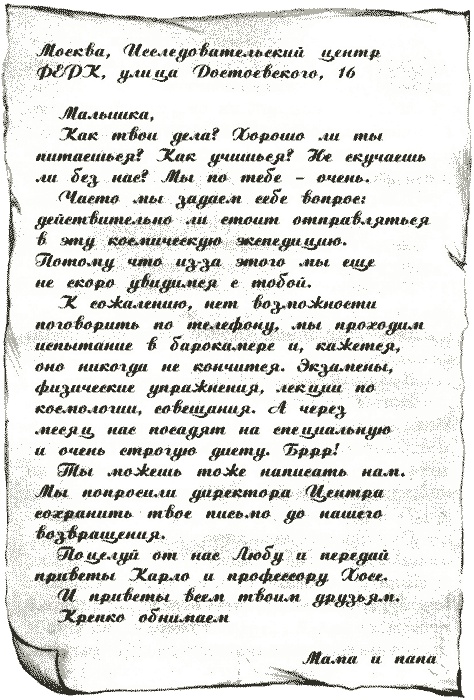 Москва, Исследовательский центр
ФЕРК, улица Достоевского, 16
Малышка,
Как твои дела? Хорошо ли ты
питаешься? Как учишься? Не скучаешь
ли без нас? Мы по тебе – очень.
Часто мы задаем себе вопрос:
действительно ли стоит отправляться
в эту космическую экспедицию.
Потому что из-за этого мы еще
не скоро увидимся с тобой.
К сожалению, нет возможности
поговорить по телефону, мы проходим
испытание в барокамере и, кажется,
оно никогда не кончится. Экзамены,
физические упражнения, лекции по
космологии, совещания. А через
месяц нас посадят на специальную
и очень строгую диету. Бррр!
Ты можешь тоже написать нам.
Мы попросили директора Центра
сохранить твое письмо до нашего
возвращения.
Поцелуй от нас Любу и передай
приветы Карло и профессору Хосе.
И приветы всем твоим друзьям.
Крепко обнимаем
Мама и папа